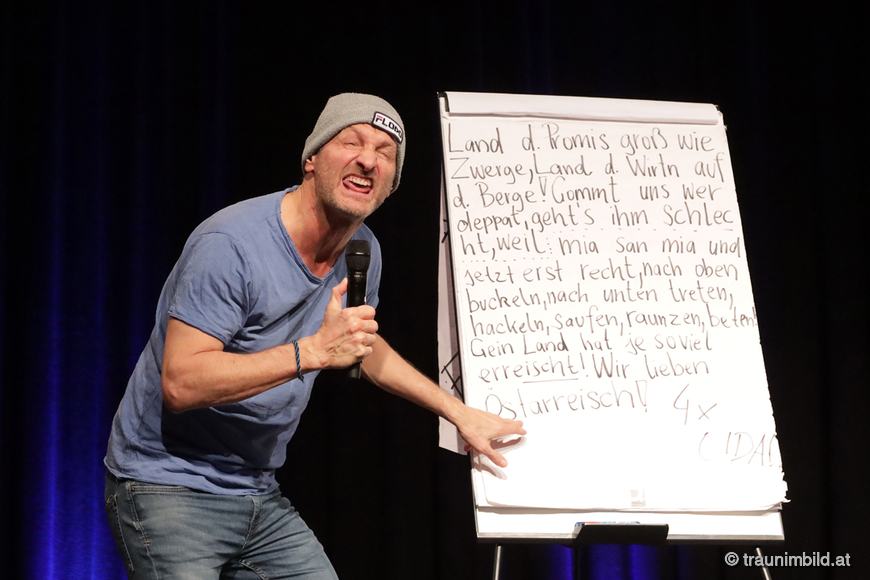 FLOB
Land d. Promis groß wie
Zwerge, Land d. Wirtn auf
d. Berge! Gommt uns wer
deppat, geht's ihm schlec
ht, weil: mia san mia und
jetzt erst recht, nach oben
buckeln, nach unten treten,
hackeln, saufen, raunzen, beten!
Gein Land hat je soviel
erreischt! Wir lieben
Östarreisch! 4x
© traunimbild.at